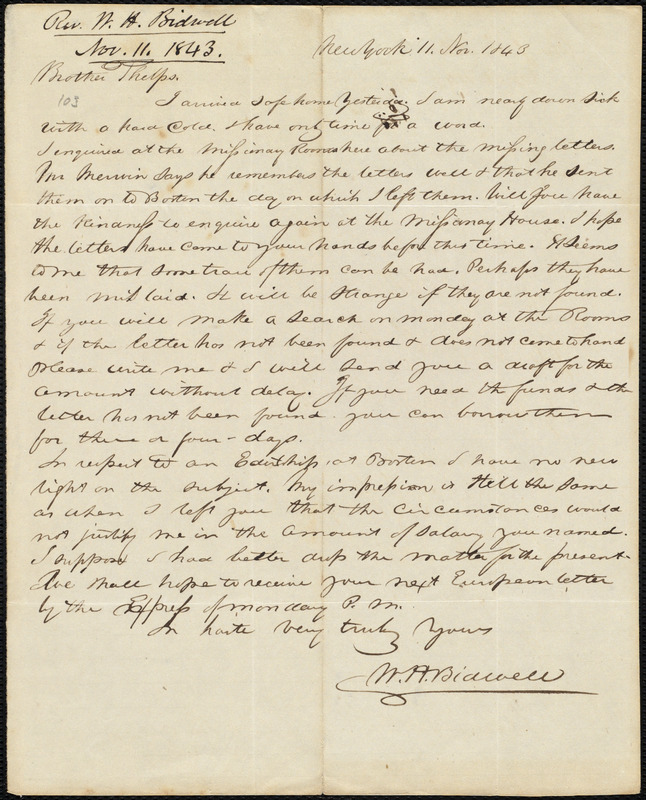 Rev. W. H. Bidwell
Nov. 11. 1843.
New York 11. Nov. 1843
Brother Phelps.
103
I arrived safe home yesterday. I am nearly down sick
with a hard cold. & have only time for a word.
I enquired at the Missionary Rooms here about the missing letters.
Mr Merwin says he remembers the letters well & that he sent
them on to Boston the day on which I left them. Will you have
the kindness to enquire again at the Missionary House. I hope
the letters have come to your hands before this time. It seems
to me that some trace of them can be had. Perhaps they have
been mislaid. It will be strange if they are not found.
If you will make a search on monday at the Rooms
& if the letter has not been found & does not come to hand
please write me & I will send you a draft for the
amount without delay. If you need the funds & the
letter has not been found. you can borrow them
for three or four - days.
In respect to an Editship at Boston I have no new
light on the subject. My impression is still the same
as when I left you that the circumstances would
not justify me in the amount of salary you named.
I suppose I had better drop the matter for the present.
We shall hope to receive your next European letter
by the Express of monday P. M.
In haste very truly yours
W. H. Bidwell